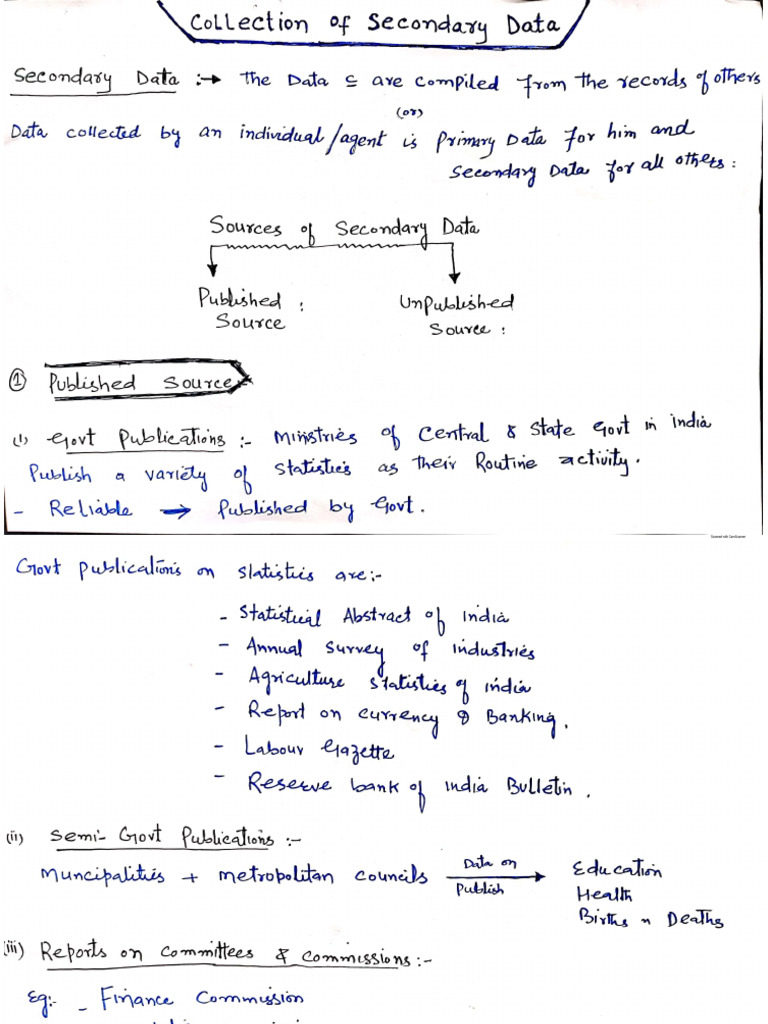 Collection of Secondary Data
Secondary Data :→ the Data ⊆ are compiled from the records of others
(or)
Data collected by an individual/agent is Primary Data for him and
Secondary Data for all others :
Sources of Secondary Data
Published : Unpublished
Source Source :
① Published Source
(i) Govt Publications :- Ministries of Central & State Govt in India
Publish a variety of Statistics as their Routine activity.
- Reliable → Published by Govt.
Scanned with CamScanner
Govt Publications on Statistics are:-
- Statistical Abstract of India
- Annual Survey of Industries
- Agriculture Statistics of India
- Report on currency & Banking.
- Labour Gazette
- Reserve bank of India Bulletin.
(ii) Semi-Govt Publications :-
Muncipalities + Metropolitan Councils Data on Publish → Education
Health
Births n Deaths
(iii) Reports on Committees & Commissions :-
Eg:- - Finance Commission